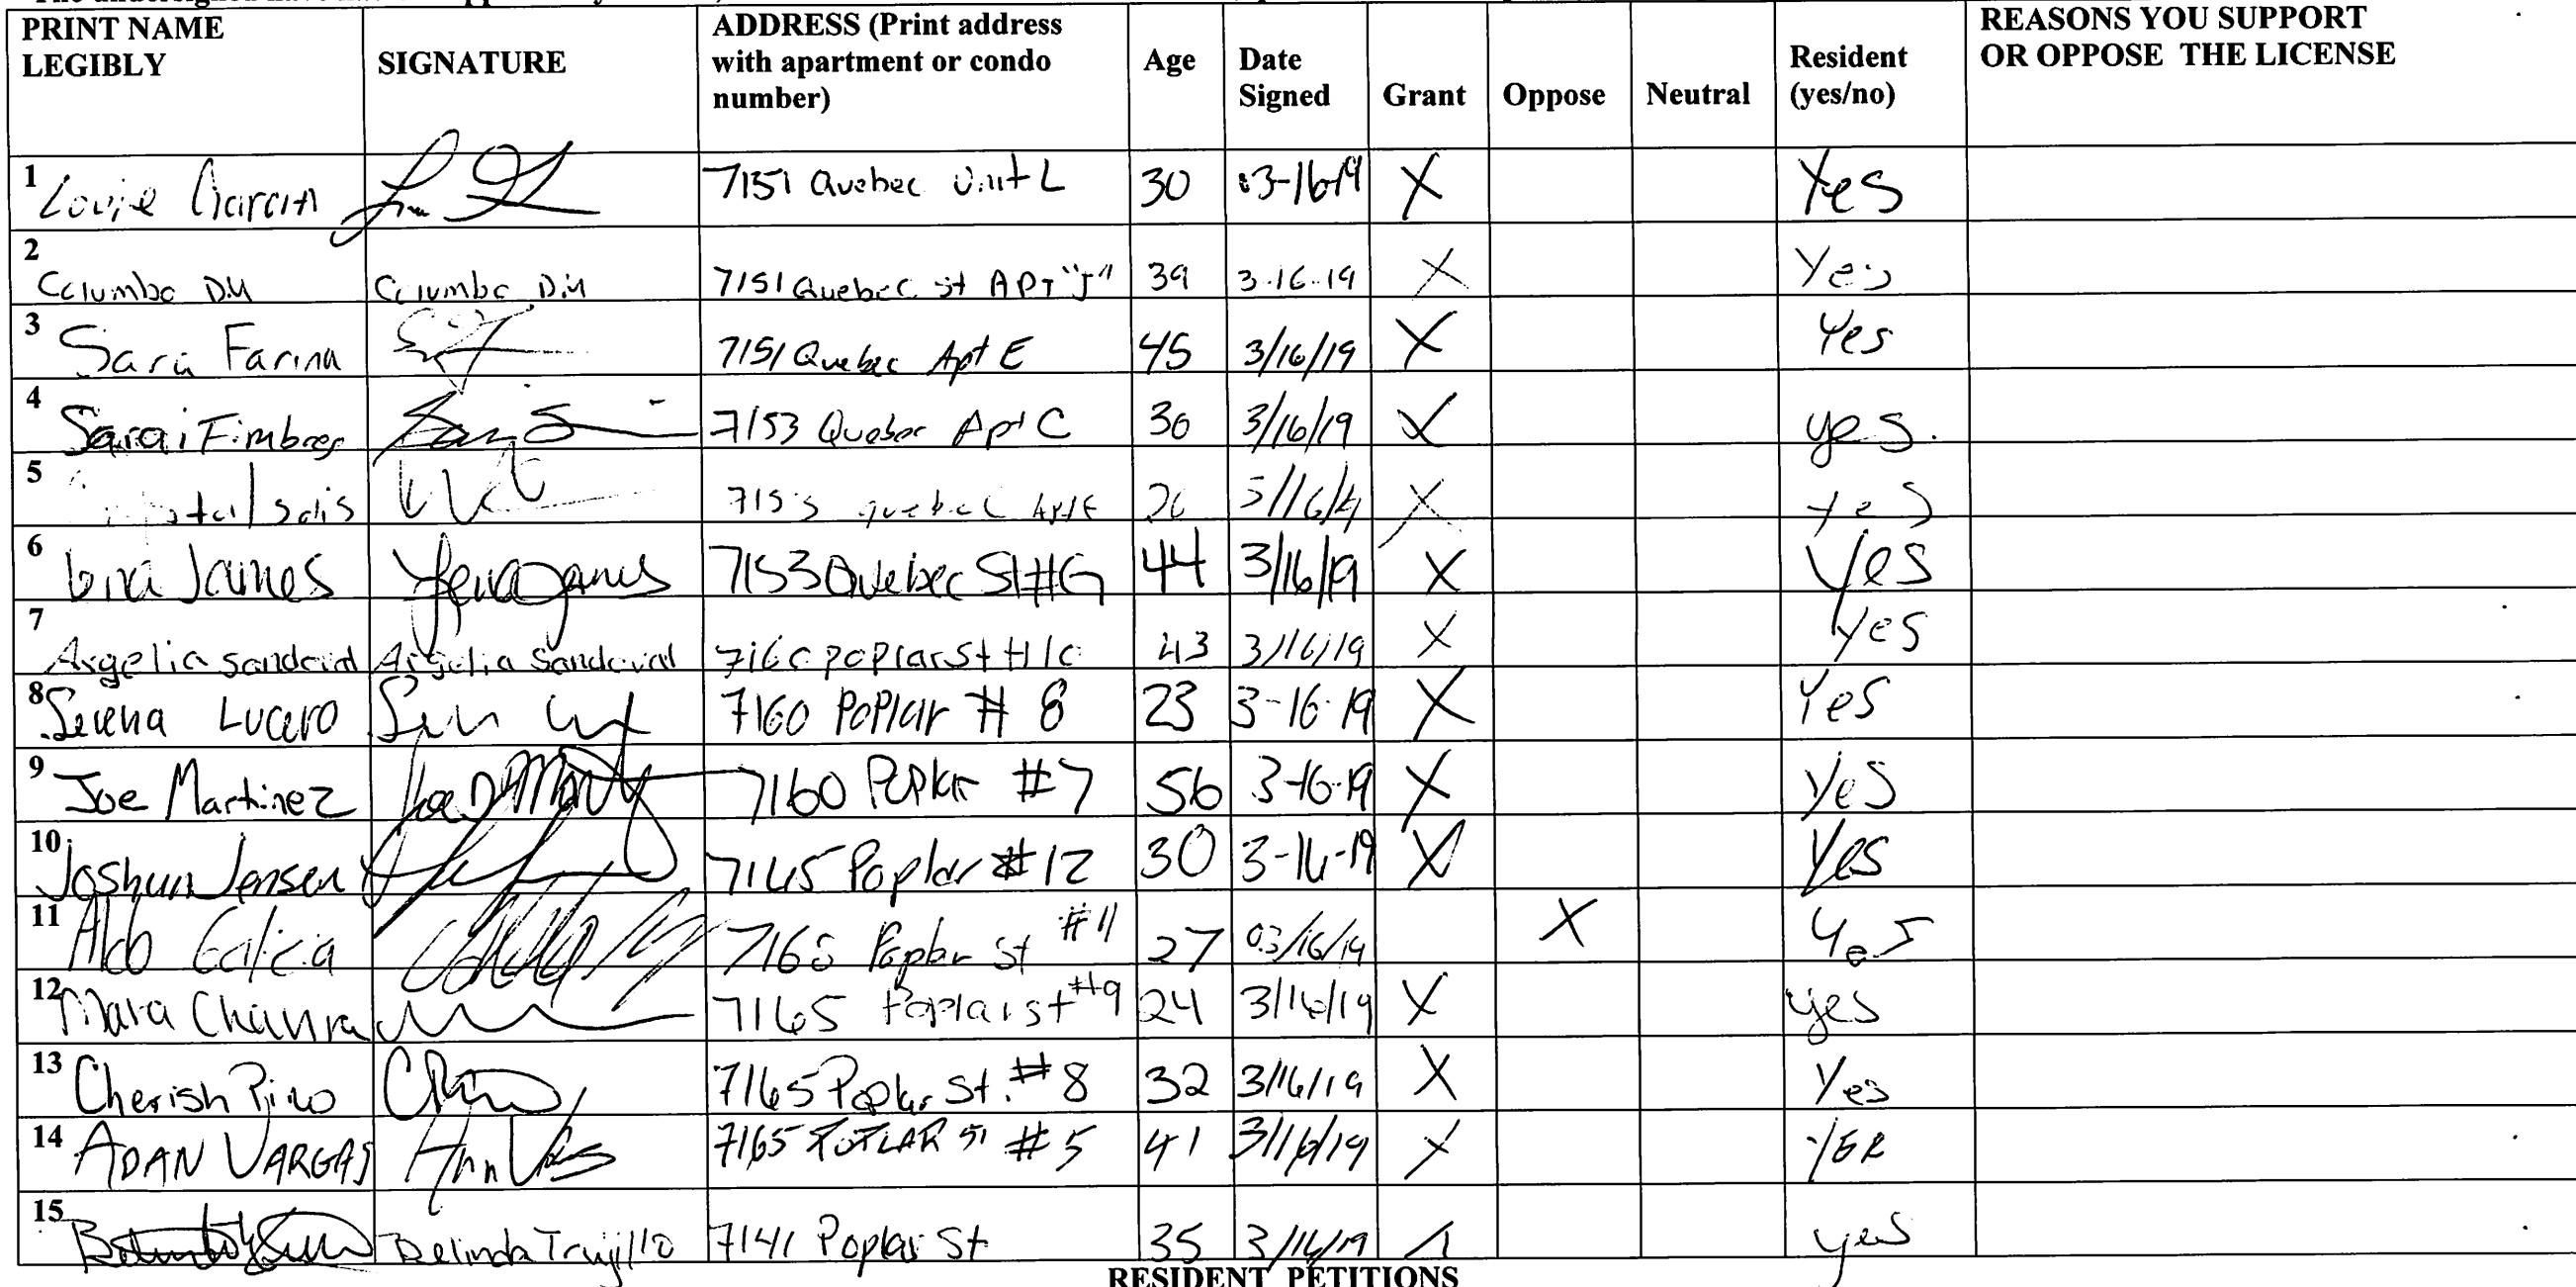 PRINT NAME LEGIBLY SIGNATURE ADDRESS (Print address with apartment or condo number) Age Date Signed Grant Oppose Neutral Resident (yes/no) REASONS YOU SUPPORT OR OPPOSE THE LICENSE
1 Louie Garcia 7151 Quebec Unit L 30 03-16-19 X Yes
2 D.M D.M 7151 Quebec st APT "J" 39 3-16-19 X Yes
3 Sara Farina 7151 Quebec Apt E 45 3/16/19 X Yes
4 Sarai Fimbres 7153 Quebec Apt C 30 3/16/19 X yes.
5 Solis 7153 quebec Apt E 3/16/19 X yes
6 James 7153 Quebec St #G 44 3/16/19 X Yes
7 Argelia sandoval Argelia Sandoval 7160 poplar St 43 3/16/19 X Yes
8 Serena Lucero 7160 Poplar # 8 23 3-16-19 X Yes
9 Joe Martinez 7160 Poplar #7 56 3-16-19 X Yes
10 Joshua Jensen 7165 Poplar #12 30 3-16-19 X Yes
11 Aldo Galicia 7165 Poplar St #11 27 03/16/19 X Yes
12 Mara 7165 Poplar st #9 24 3/16/19 X yes
13 Cherish Pino 7165 Poplar St. #8 32 3/16/19 X Yes
14 ADAN VARGAS 7165 POPLAR ST #5 41 3/16/19 X
15 Belinda Trujillo 7141 Poplar St 35 3/16/19 yes
RESIDENT PETITIONS